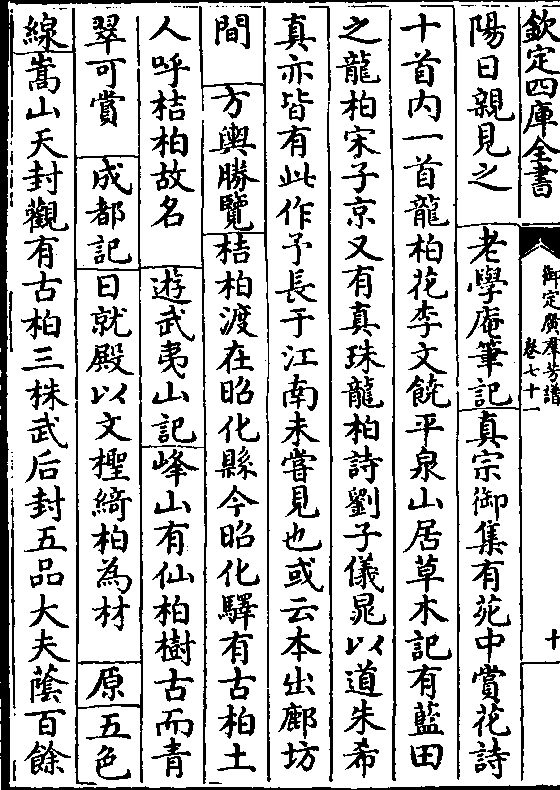 欽定四庫全書
御定廣羣芳譜
卷七十一
十
陽日親見之 老學庵筆記 真宗御集有苑中賞花詩
十首内一首龍柏花李文饒平泉山居草木記有藍田
之龍柏宋子京又有真珠龍柏詩劉子儀晁以道朱希
真亦皆有此作予長于江南未嘗見也或云本出鄜坊
間 方輿勝覽 桔柏渡在昭化縣今昭化驛有古柏土
人呼桔柏故名 遊武夷山記 峰山有仙柏樹古而青
翠可賞 成都記 日就殿以文檉綺柏為材 原 五色
線 嵩山天封觀有古柏三株武后封五品大夫蔭百餘